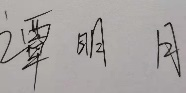 谭明月